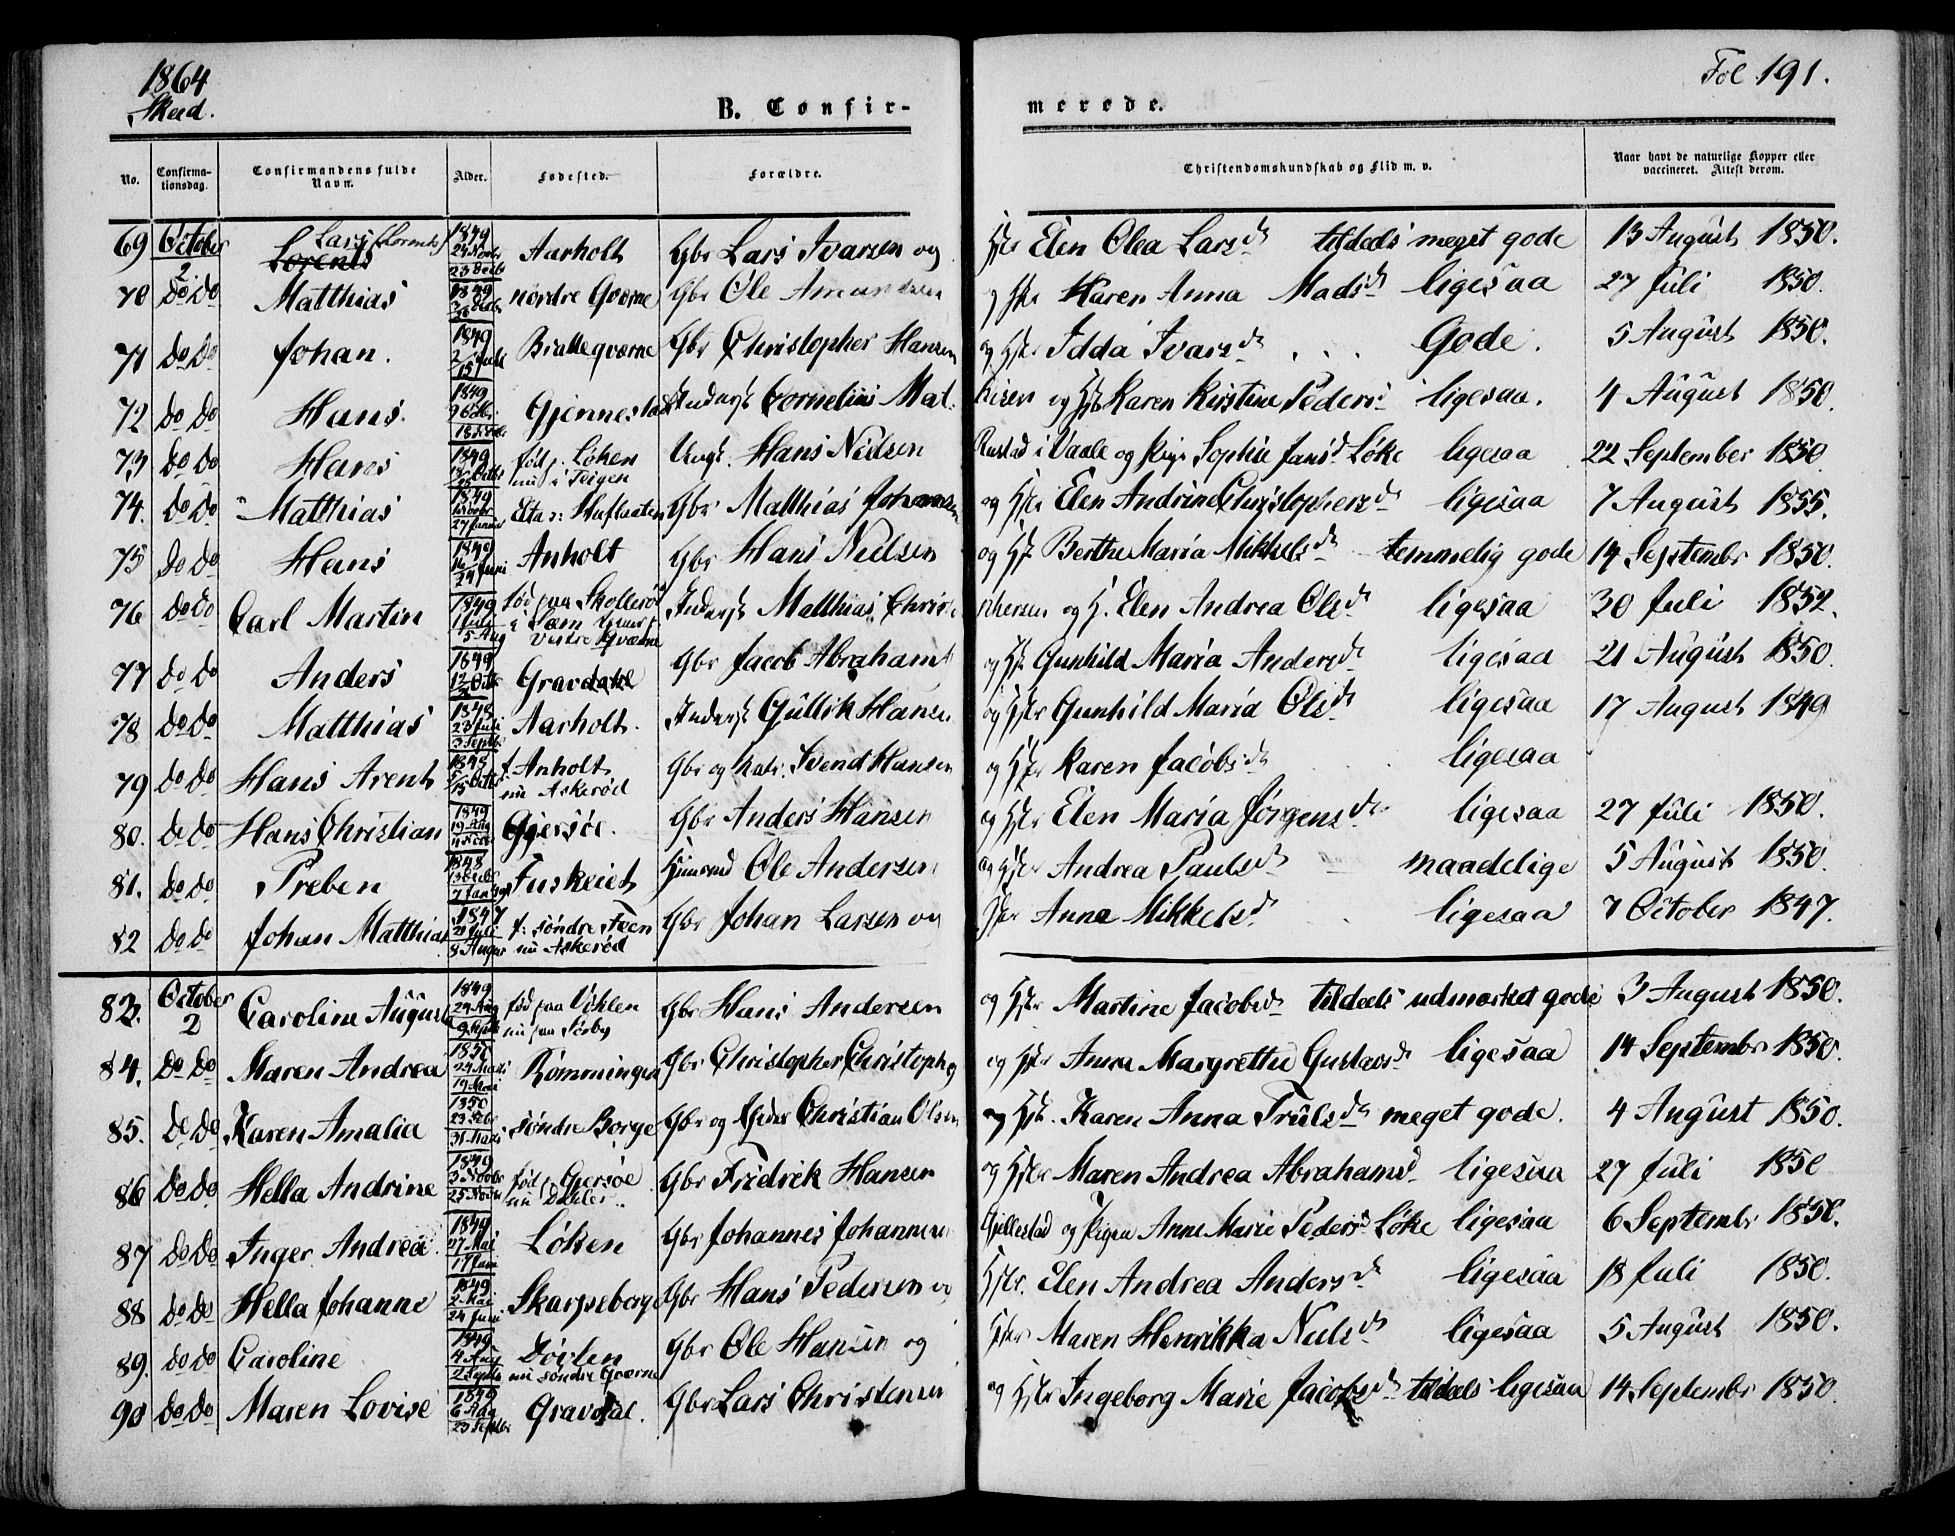 1864
Skeid.
Fol 191.
B. Confir-
merede.
No.
Confirma-
tionsdag.
Confirmandens fulde
Navn.
Alder.
Fødested.
Forældre.
Christendomskundskab og Flid m. v.
Naar havt de naturlige Kopper eller
vaccineret. Attest derom.
69 October 2 Lars (Lorents) Lorents 1849 Aarholt Gbr Lars Ivarsen og Hstr Elen Olea Larsd. tildeels meget gode 13 August 1850.
70 Do Do Matthias 1849 nordre Gværne Gbr Ole Amundsen og Hstr Karen Anna Madsd. ligesaa 27 Juli 1850.
71 Do Do Johan. 1849 Bratteqværne Gbr Christopher Hansen og Hstr Idda Ivarsd. Gode. 5 August 1850.
72 Do Do Hans. 1849 Gjennestad Cornelius Mat- og Karen Kirstine Pedersd. ligesaa. 4 August 1850.
73 Do Do Hans 1849 fød p. Løken nu i Teigen Ungk. Hans Nielsen Rustad i Vaale og Pige Sophie Jansd. Løke ligesaa 22 September 1850.
74. Do Do Matthias 1849 Gbr Matthias Johannsen og Hstr Elen Andrine Christophersd. ligesaa 7 August 1855.
75 Do Do Hans 1849 Anholt Gbr Hans Nielsen og Hstr Berthe Maria Mikkelsd. temmelig gode 14 Septembr 1850.
76 Do Do Carl Martin 1849 1 Juli 5 Aug fød paa Skollerød i vestre Gværne Matthias Christ- ophersen og H. Elen Andrea Olsd. ligesaa 30 Juli 1852.
77 Do Do Anders 1849 Gravdahl Gbr Jacob Abrahams og Hstr Gunhild Maria Andersd. ligesaa 21 August 1850.
78 Do Do Matthias 1848 23 Juli 3 Septbr Aarholt. Gullik Hansen og Hstr Gunhild Maria Olsd. ligesaa 17 August 1849
79 Do Do Hans Arent 1848 f. Anholt nu Askerød Gbr og Svend Hansen og Hstr Karen Jacobsd. ligesaa
80. Do Do Hans Christian 1849 19 Aug Gjersøe. Gbr Anders Hansen og Hstr Elen Maria Jørgensd. ligesaa 27 Juli 1850.
81. Do Do Preben 1848 Fuskeiet Huusmand Ole Andersen og Hstr Andrea Paulsd. maadelige 5 August 1850.
82 Do Do Johan Matthias 1847 21 Juli 8 August f. søndre Feen nu Askerød Gbr Johan Larsen og Hstr Anne Mikkelsd. ligesaa 7 October 1847.
83. October 2 Caroline Auguste 1849 24 Aug 9 Septb fød paa Vøklen nu paa Nørby Gbr Hans Andersen og Hstr Martine Jacobsd. tildeels udmærket gode 3 August 1850.
84. Do Do Maren Andrea 1850 19 Mai Rømmingen Gbr Christopher Christoph og Hstr Anna Margrethe Gustavsd. ligesaa 14 Septembr 1850.
85. Do Do Karen Amalia 1850 23 Febr 31 Marts søndre Borge Gbr og Christian Olsen og Hstr. Karen Anna Trulsd. meget gode. 4 August 1850.
86 Do Do Hella Andrine 1849 3 Novbr 25 Novbr fød p. Gjersøe nu Dahler. Gbr Fredrik Hansen og Hstr Maren Andrea Abrahamsd. ligesaa 27 Juli 1850
87 Do Do Inger Andrea. 1849 27 Mai 17 Juni Løken Gbr Johannes Johannesen Gjellestad og Pigen Anne Marie Pedersd. Løke ligesaa 6 Septembr 1850.
88 Do Do Hella Johanne 1849 2 Mai 24 Juni Skarpseborge Gbr Hans Pedersen og Hstr. Elen Andrea Andersd. ligesaa 18 Juli 1850.
89. Do Do Caroline 1849 4 Aug 2 Septb Dørlen nu søndre Gværne Gbr Ole Hansen og Hstr Maren Henrikka Nielsd. ligesaa 5 August 1850.
90 Do Do Maren Lovise 1849 6 Aug 23 Septbr Gravdal. Gbr Lars Christensen og Hstr Ingeborg Marie Jacobsd. tildeels ligesaa 14 Septembr 1850